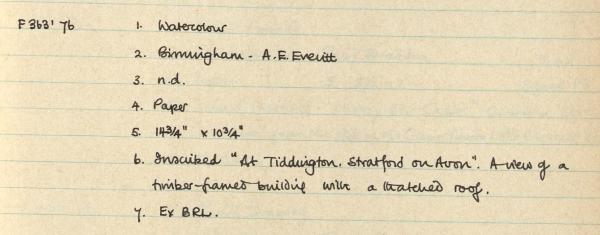 F363'76 1. Watercolour
2. Birmingham - A.E. Everitt
3. n.d.
4. Paper
5. 14 3/4" x 10 3/4"
6. Inscribed "At Tiddington, Stratford on Avon". A view of a
timber-framed building with a thatched roof.
7. Ex BRL.